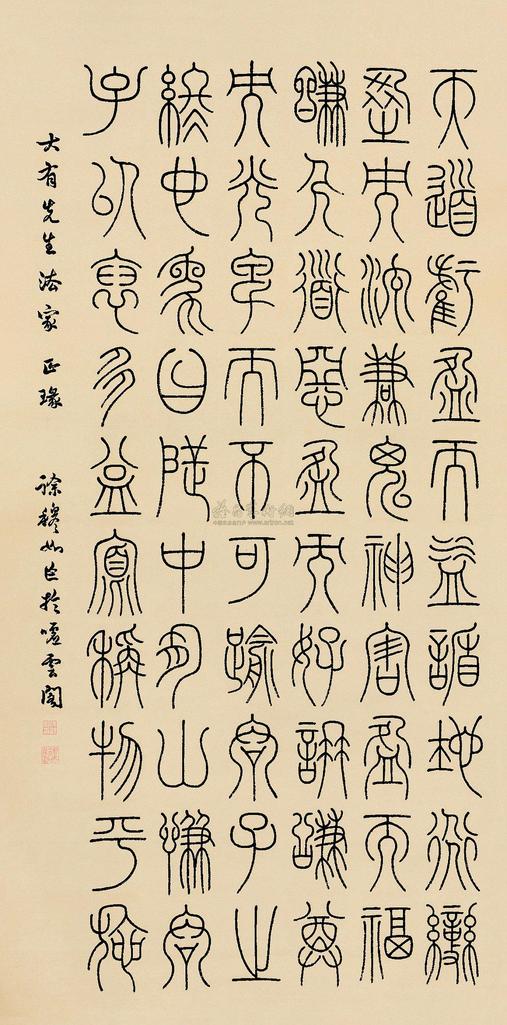 天道虧盈而益謙地道變
盈而流謙鬼神害盈而福
謙人道惡盈而好謙謙尊
而光卑而不可踰君子之
終也象曰地中有山謙君
子以裒多益寡稱物平施
大有先生法家 正瑑 徐穆如 於噓雲閣